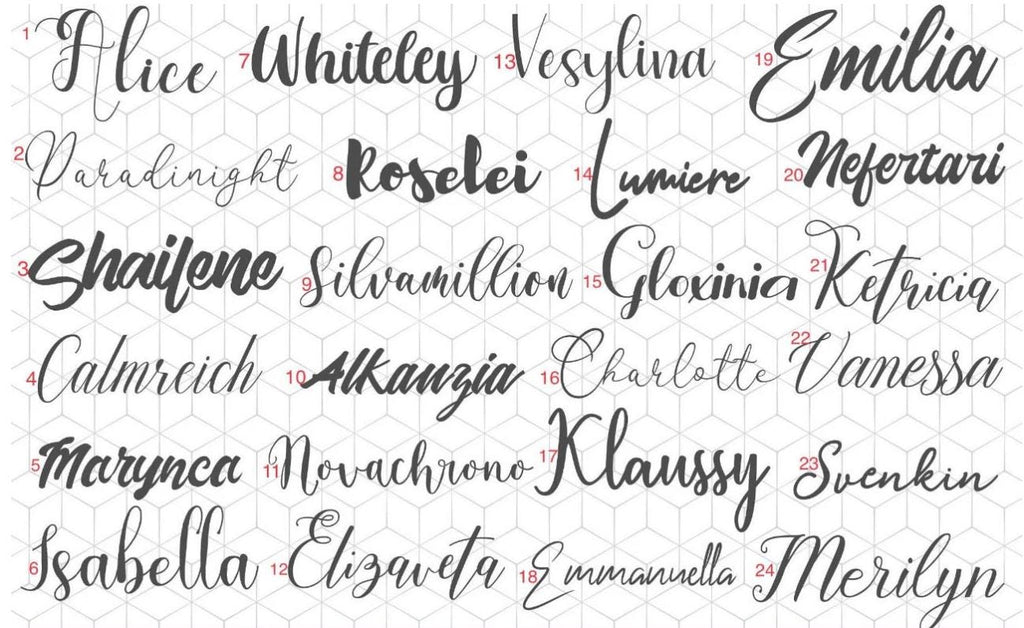 1 Alice
2 Paradinight
3 Shailene
4 Calmreich
5 Marynca
6 Isabella
7 Whiteley
8 Roselei
9 Silvamillion
10 Alkanzia
11 Novachrono
12 Elizaveta
13 Vesylina
14 Lumiere
15 Gloxinia
16 Charlotte
17 Klaussy
18 Emmanuella
19 Emilia
20 Nefertari
21 Ketricia
22 Vanessa
23 Svenkin
24 Merilyn